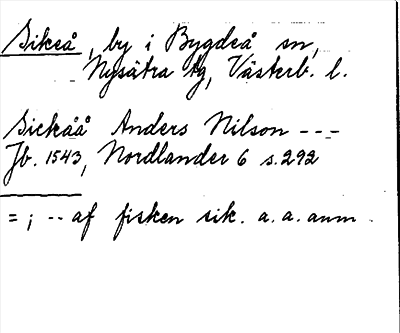 Sikeå, by i Bygdeå sn,
Nysätra tg, Västerb. l.
Sickåå Anders Nilson ---
Jb. 1543, Nordlander 6 s. 292
= ; -- af fisken sik. a. a. anm.